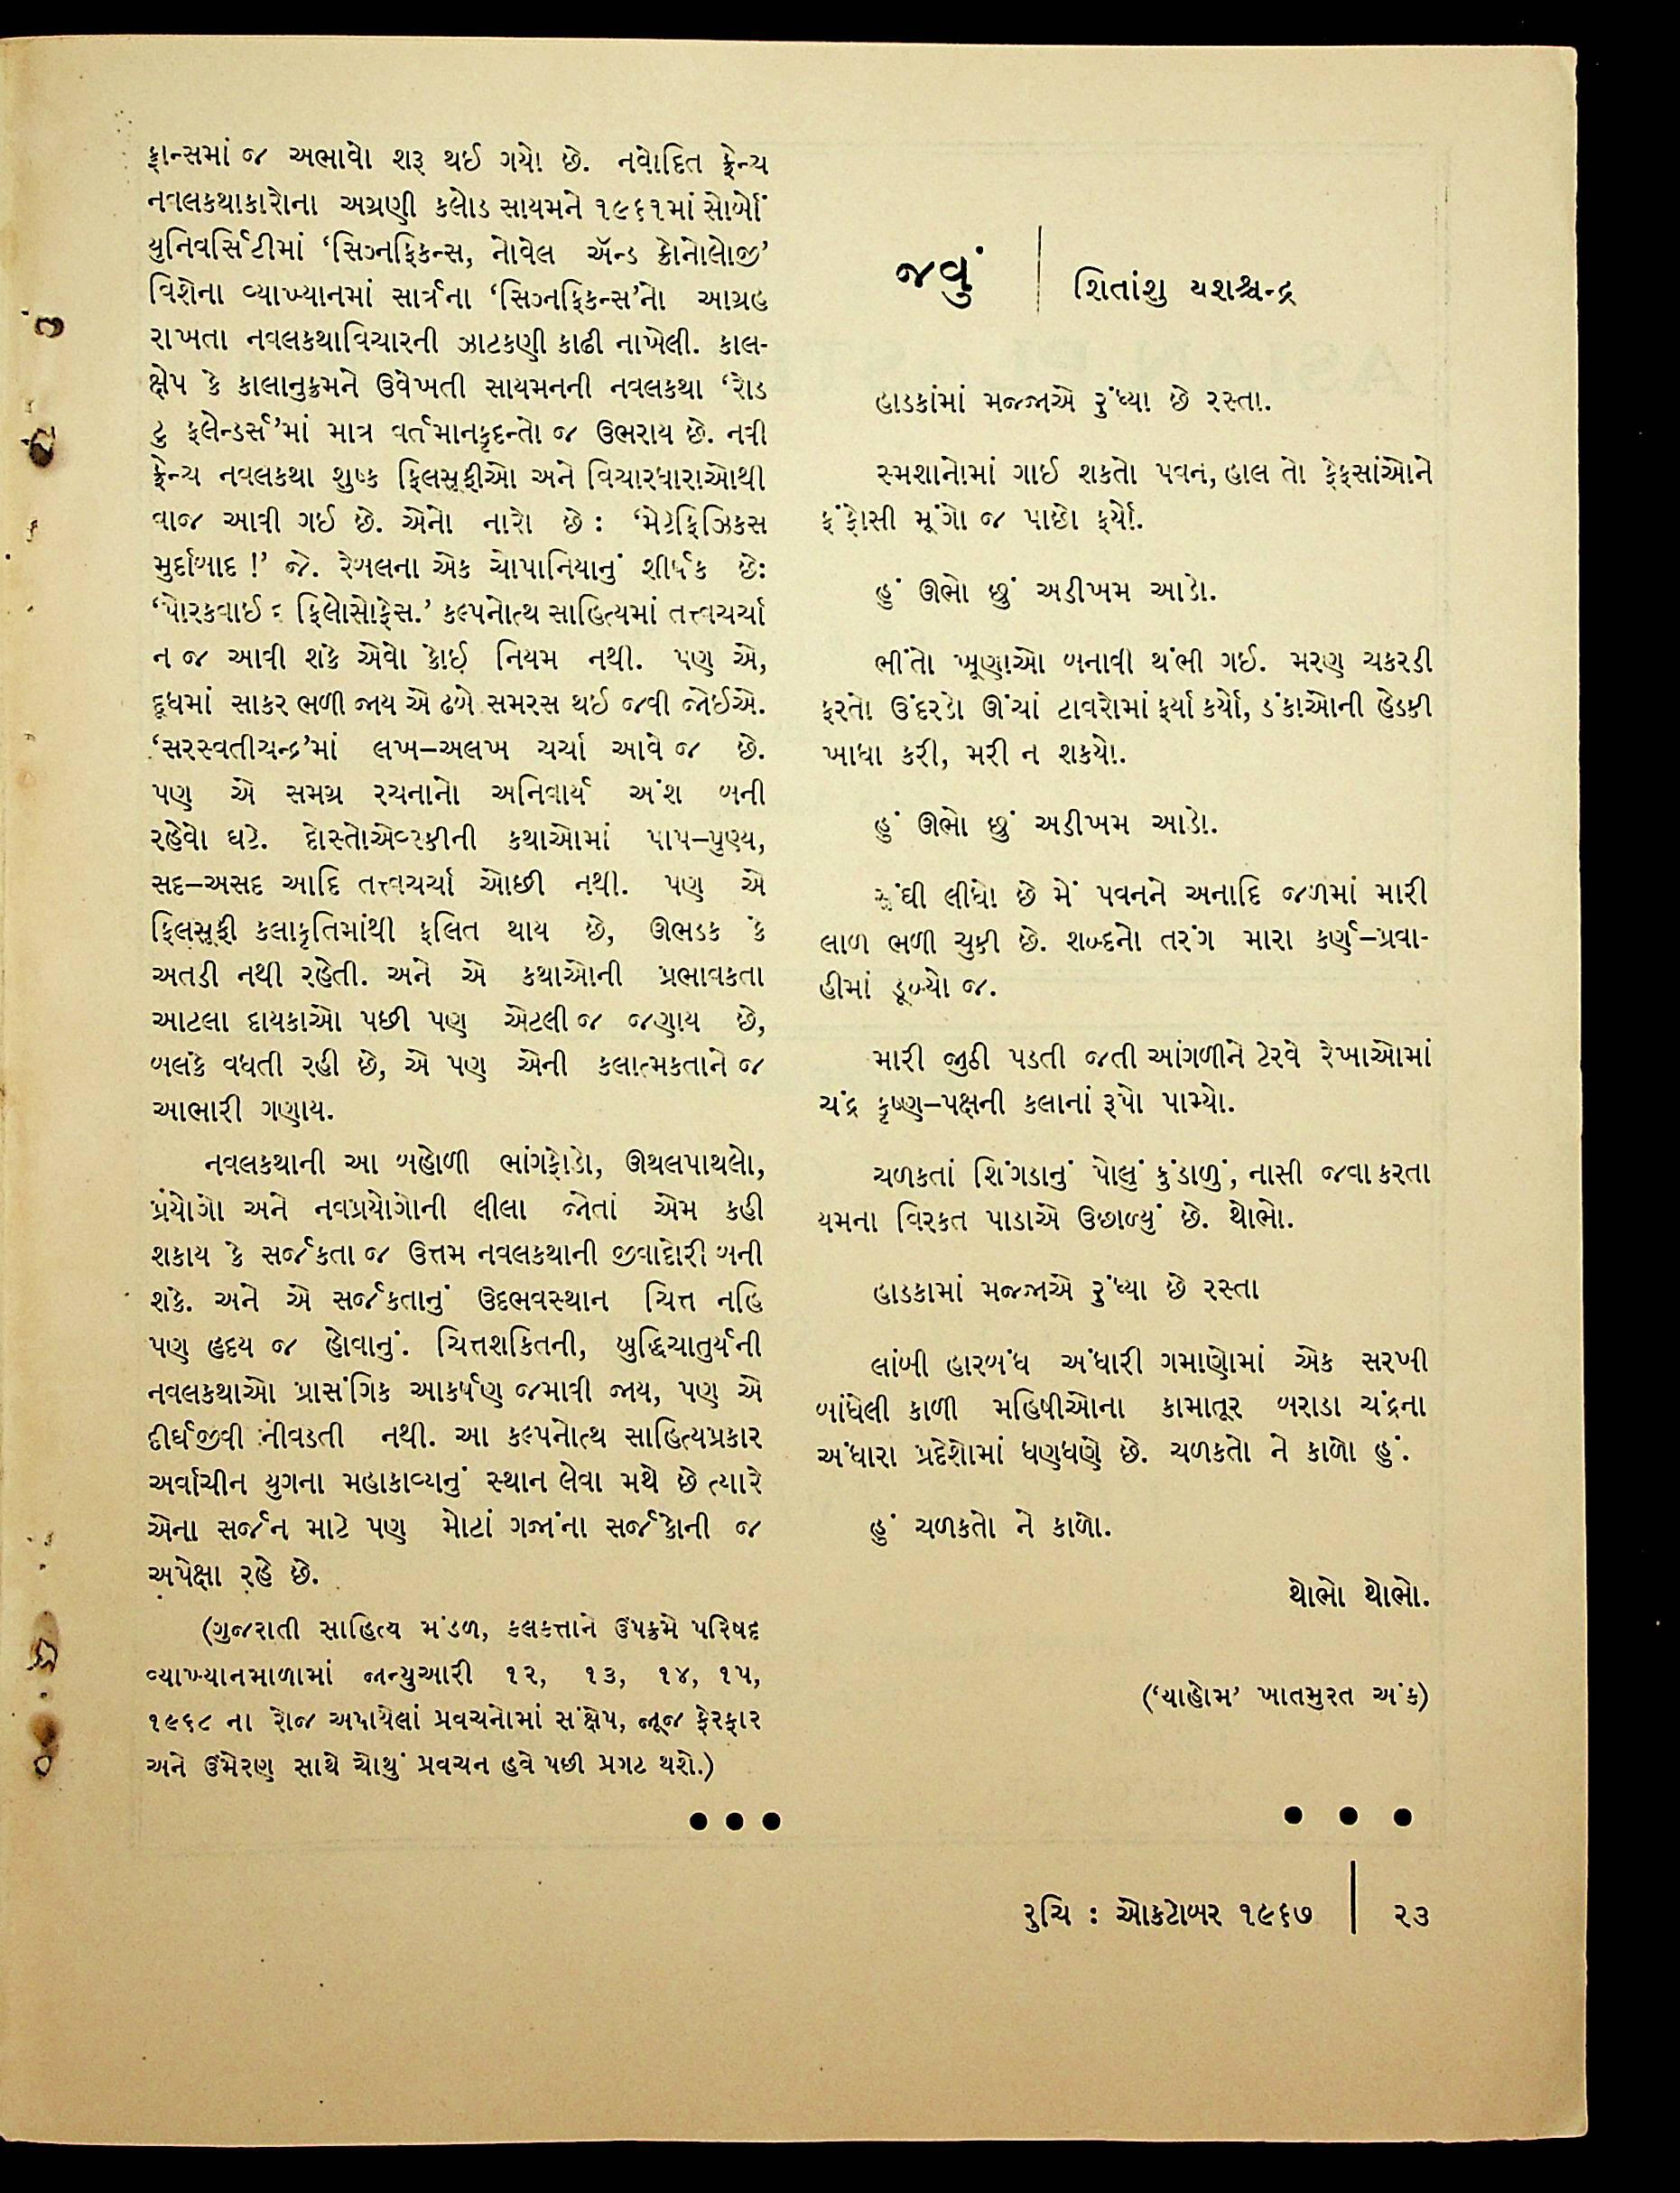 ફ્રાન્સમાં જ અભાવો શરૂ થઈ ગયો છે. નવોદિત ફ્રેન્ચ
નવલકથાકારોના અગ્રણી કલોડ સાયમને ૧૯૬૧માં સોર્બો
યુનિવર્સિટીમાં ‘સિગ્નફિકન્સ, નોવેલ ઍન્ડ ક્રોનોલોજી’
વિશેના વ્યાખ્યાનમાં સાર્ત્રના ‘સિગ્નફિકન્સ’નો આગ્રહ
રાખતા નવલકથાવિચારની ઝાટકણી કાઢી નાખેલી. કાલ-
ક્ષેપ કે કાલાનુક્રમને ઉવેખતી સાયમનની નવલકથા ‘રોડ
ટુ ફ્લેન્ડર્સ’માં માત્ર વર્તમાનકૃદન્તો જ ઉભરાય છે. નવી
ફ્રેન્ચ નવલકથા શુષ્ક ફિલસૂફીઓ અને વિચારધારાઓથી
વાજ આવી ગઈ છે. એનો નારો છે : ‘મેટેફિઝિકસ
મુર્દાબાદ !’ જે. રેબલના એક ચોપાનિયાનું શીર્ષક છે:
‘પોરકવાઈ દ ફિલોસોફેસ.’ કલ્પનોત્થ સાહિત્યમાં તત્ત્વચર્ચા
ન જ આવી શકે એવો કોઈ નિયમ નથી. પણ એ,
દૂધમાં સાકર ભળી જાય એ ઢબે સમરસ થઈ જવી જોઈએ.
‘સરસ્વતીચન્દ્ર’માં લખ–અલખ ચર્ચા આવે જ છે.
પણ એ સમગ્ર રચનાનો અનિવાર્ય અંશ બની
રહેવો ઘટે. દોસ્તોએવ્સ્કીની કથાઓમાં પાપ–પુણ્ય,
સદ–અસદ આદિ તત્ત્વચર્ચા ઓછી નથી. પણ એ
ફિલસૂફી કલાકૃતિમાંથી ફલિત થાય છે, ઊભડક કે
અતડી નથી રહેતી. અને એ કથાઓની પ્રભાવકતા
આટલા દાયકાઓ પછી પણ એટલી જ જણાય છે,
બલકે વધતી રહી છે, એ પણ એની કલાત્મકતાને જ
આભારી ગણાય.
નવલકથાની આ બહોળી ભાંગફોડો, ઊથલપાથલો,
પ્રયોગો અને નવપ્રયોગોની લીલા જોતાં એમ કહી
શકાય કે સર્જકતા જ ઉત્તમ નવલકથાની જીવાદોરી બની
શકે. અને એ સર્જકતાનું ઉદભવસ્થાન ચિત્ત નહિ
પણ હૃદય જ હોવાનું. ચિત્તશકિતની, બુદ્ધિચાતુર્યની
નવલકથાઓ પ્રાસંગિક આકર્ષણ જમાવી જાય, પણ એ
દીર્ઘજીવી નીવડતી નથી. આ કલ્પનોત્થ સાહિત્યપ્રકાર
અર્વાચીન યુગના મહાકાવ્યનું સ્થાન લેવા મથે છે ત્યારે
એના સર્જન માટે પણ મોટાં ગજાંના સર્જકોની જ
અપેક્ષા રહે છે.
(ગુજરાતી સાહિત્ય મંડળ, કલકત્તાને ઉપક્રમે પરિષદ
વ્યાખ્યાનમાળામાં જાન્યુઆરી ૧૨, ૧૩, ૧૪, ૧૫,
૧૯૬૮ ના રોજ અપાયેલાં પ્રવચનોમાં સંક્ષેપ, જૂજ ફેરફાર
અને ઉમેરણ સાથે ચોથું પ્રવચન હવે પછી પ્રગટ થશે.)
●●●
જવું | શિતાંશુ યશશ્ચન્દ્ર
હાડકાંમાં મજ્જાએ રુંધ્યા છે રસ્તા.
સ્મશાનોમાં ગાઈ શકતો પવન, હાલ તો ફેફસાંઓને
ફંફોસી મૂંગો જ પાછો ફર્યો.
હું ઊભો છું અડીખમ આડો.
ભીંતો ખૂણાઓ બનાવી થંભી ગઈ. મરણ ચકરડી
ફરતો ઉંદરડો ઊંચાં ટાવરોમાં ફર્યા કર્યો, ડંકાઓની હેડકી
ખાધા કરી, મરી ન શકયો.
હું ઊભો છું અડીખમ આડો.
સુંઘી લીધો છે મેં પવનને અનાદિ જળમાં મારી
લાળ ભળી ચુકી છે. શબ્દનો તરંગ મારા કર્ણ–પ્રવા-
હીમાં ડૂબ્યો જ.
મારી જુઠી પડતી જતી આંગળીને ટેરવે રેખાઓમાં
ચંદ્ર કૃષ્ણ–પક્ષની કલાનાં રૂપો પામ્યો.
ચળકતાં શિંગડાનું પોલું કુંડાળું, નાસી જવા કરતા
યમના વિરકત પાડાએ ઉછાળ્યું છે. થોભો.
હાડકામાં મજ્જાએ રુંધ્યા છે રસ્તા
લાંબી હારબંધ અંધારી ગમાણોમાં એક સરખી
બાંધેલી કાળી મહિષીઓના કામાતૂર બરાડા ચંદ્રના
અંધારા પ્રદેશોમાં ધણધણે છે. ચળકતો ને કાળો હું.
હું ચળકતો ને કાળો.
થોભો થોભો.
(‘યાહોમ’ ખાતમુરત અંક)
● ● ●
રુચિ : ઓકટોબર ૧૯૬૭ | ૨૩